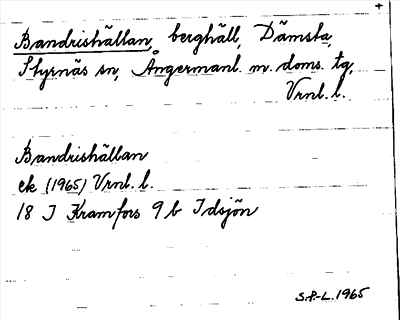 Bandrishällan, berghäll, Dämsta,
Styrnäs sn, Ångermanl. m. doms. tg,
Vrnl. l.
Bandrishällan
ek (1965) Vrnl. l.
18 I Kramfors 9 b Idsjön
S.P.-L. 1965